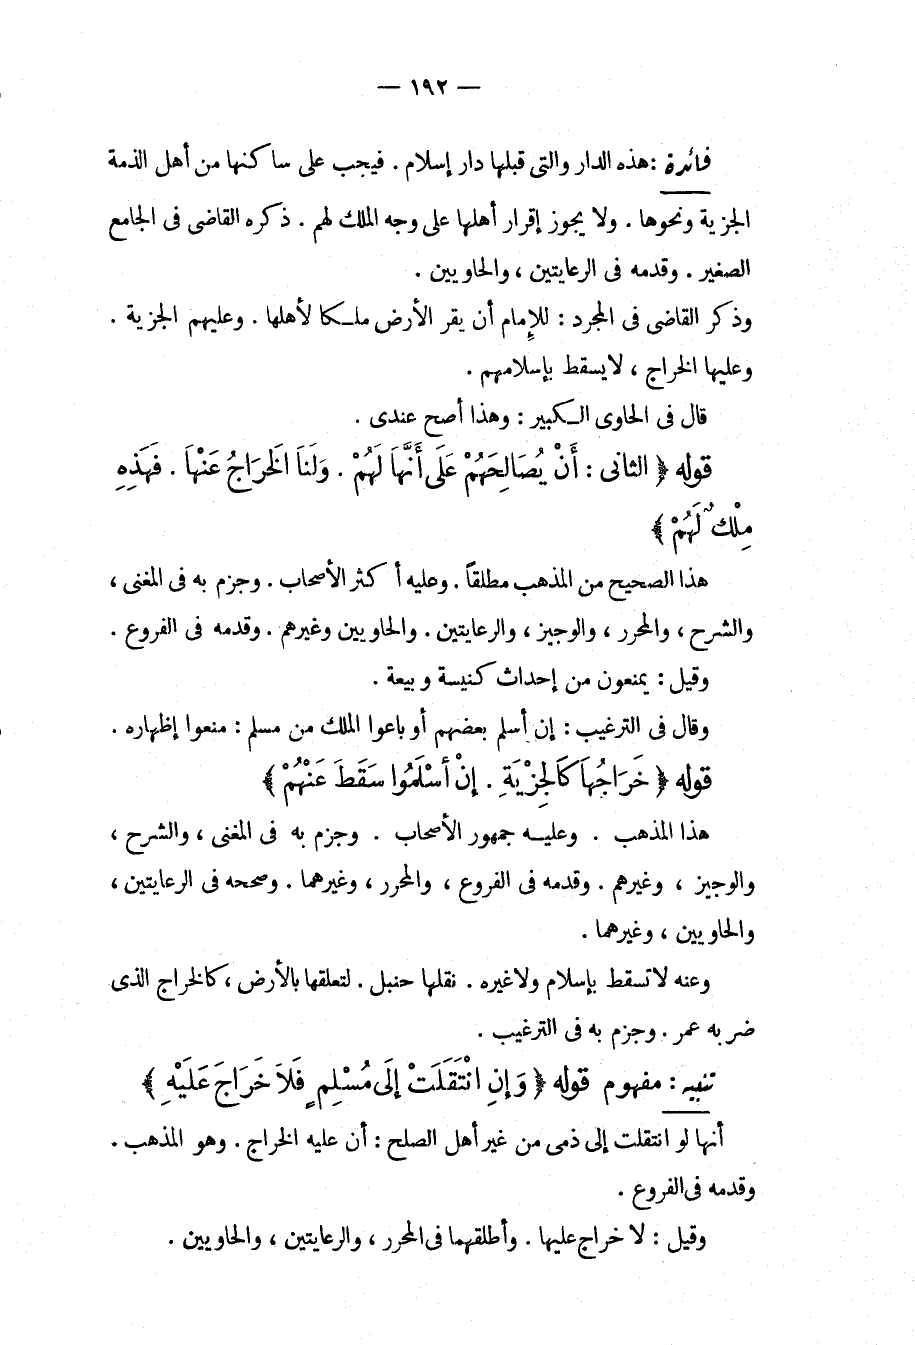 — ١٩٢ —
فائدة : هذه الدار والتى قبلها دار إسلام . فيجب على ساكنها من أهل الذمة
الجزية ونحوها . ولا يجوز إقرار أهلها على وجه الملك لهم . ذكره القاضى فى الجامع
الصغير . وقدمه فى الرعايتين ، والحاويين .
وذكر القاضى فى المجرد : للإمام أن يقر الأرض ملكا لأهلها . وعليهم الجزية .
وعليها الخراج ، لا يسقط بإسلامهم .
قال فى الحاوى الكبير : وهذا أصح عندى .
قوله ﴿ الثانى : أَنْ يُصَالِحَهُمْ عَلَى أَنَّهَا لَهُمْ . وَلَنَا الْخَرَاجُ عَنْهَا . فَهَذِهِ
مِلْكٌ لَهُمْ ﴾
هذا الصحيح من المذهب مطلقاً . وعليه أكثر الأصحاب . وجزم به فى المغنى ،
والشرح ، والمحرر ، والوجيز ، والرعايتين . والحاويين وغيرهم . وقدمه فى الفروع .
وقيل : يمنعون من إحداث كنيسة وبيعة .
وقال فى الترغيب : إن أسلم بعضهم أو باعوا الملك من مسلم : منعوا إظهاره .
قوله ﴿ خَرَاجُهَا كَالْجِزْيَةِ . إِنْ أَسْلَمُوا سَقَطَ عَنْهُمْ ﴾
هذا المذهب . وعليه جمهور الأصحاب . وجزم به فى المغنى ، والشرح ،
والوجيز ، وغيرهم . وقدمه فى الفروع ، والمحرر ، وغيرهما . وصححه فى الرعايتين ،
والحاويين ، وغيرهما .
وعنه لا تسقط بإسلام ولا غيره . نقلها حنبل . لتعلقها بالأرض ، كالخراج الذى
ضربه عمر . وجزم به فى الترغيب .
تنبيه : مفهوم قوله ﴿ وَإِنِ انْتَقَلَتْ إِلَى مُسْلِمٍ فَلَا خَرَاجَ عَلَيْهِ ﴾
أنها لو انتقلت إلى ذمى من غير أهل الصلح : أن عليه الخراج . وهو المذهب .
وقدمه فى الفروع .
وقيل : لا خراج عليها . وأطلقهما فى المحرر ، والرعايتين ، والحاويين .